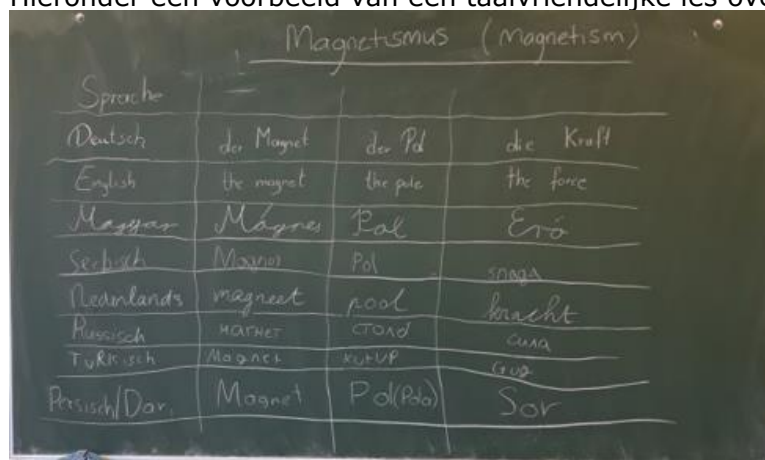 Hieronder een voorbeeld van een taalvriendelijke les ove
Magnetismus (Magnetism)
Sprache
Deutsch der Magnet der Pol die Kraft
English the magnet the pole the force
Magyar Mágnes Pol Erő
Serbisch Magnet Pol snaga
Nederlands magneet pool kracht
Russisch магнет столд сила
Türkisch Magnet KUtUP Güç
Persisch/Dar. Magnet Pol(Pola) Sor